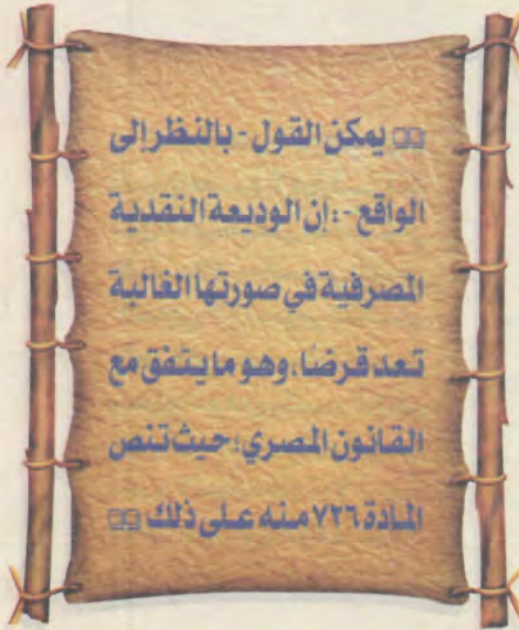 يمكن القول - بالنظر إلى
الواقع -: إن الوديعة النقدية
المصرفية في صورتها الغالبة
تعد قرضًا، وهو ما يتفق مع
القانون المصري؛ حيث تنص
المادة ٧٢٦ منه على ذلك